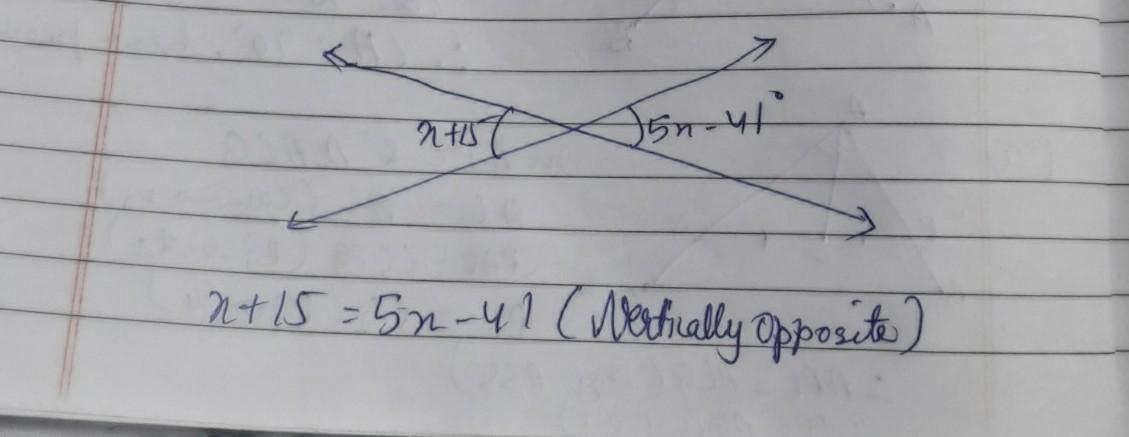 x+15
5x-41°
x+15 = 5x-41 (Vertically opposite)